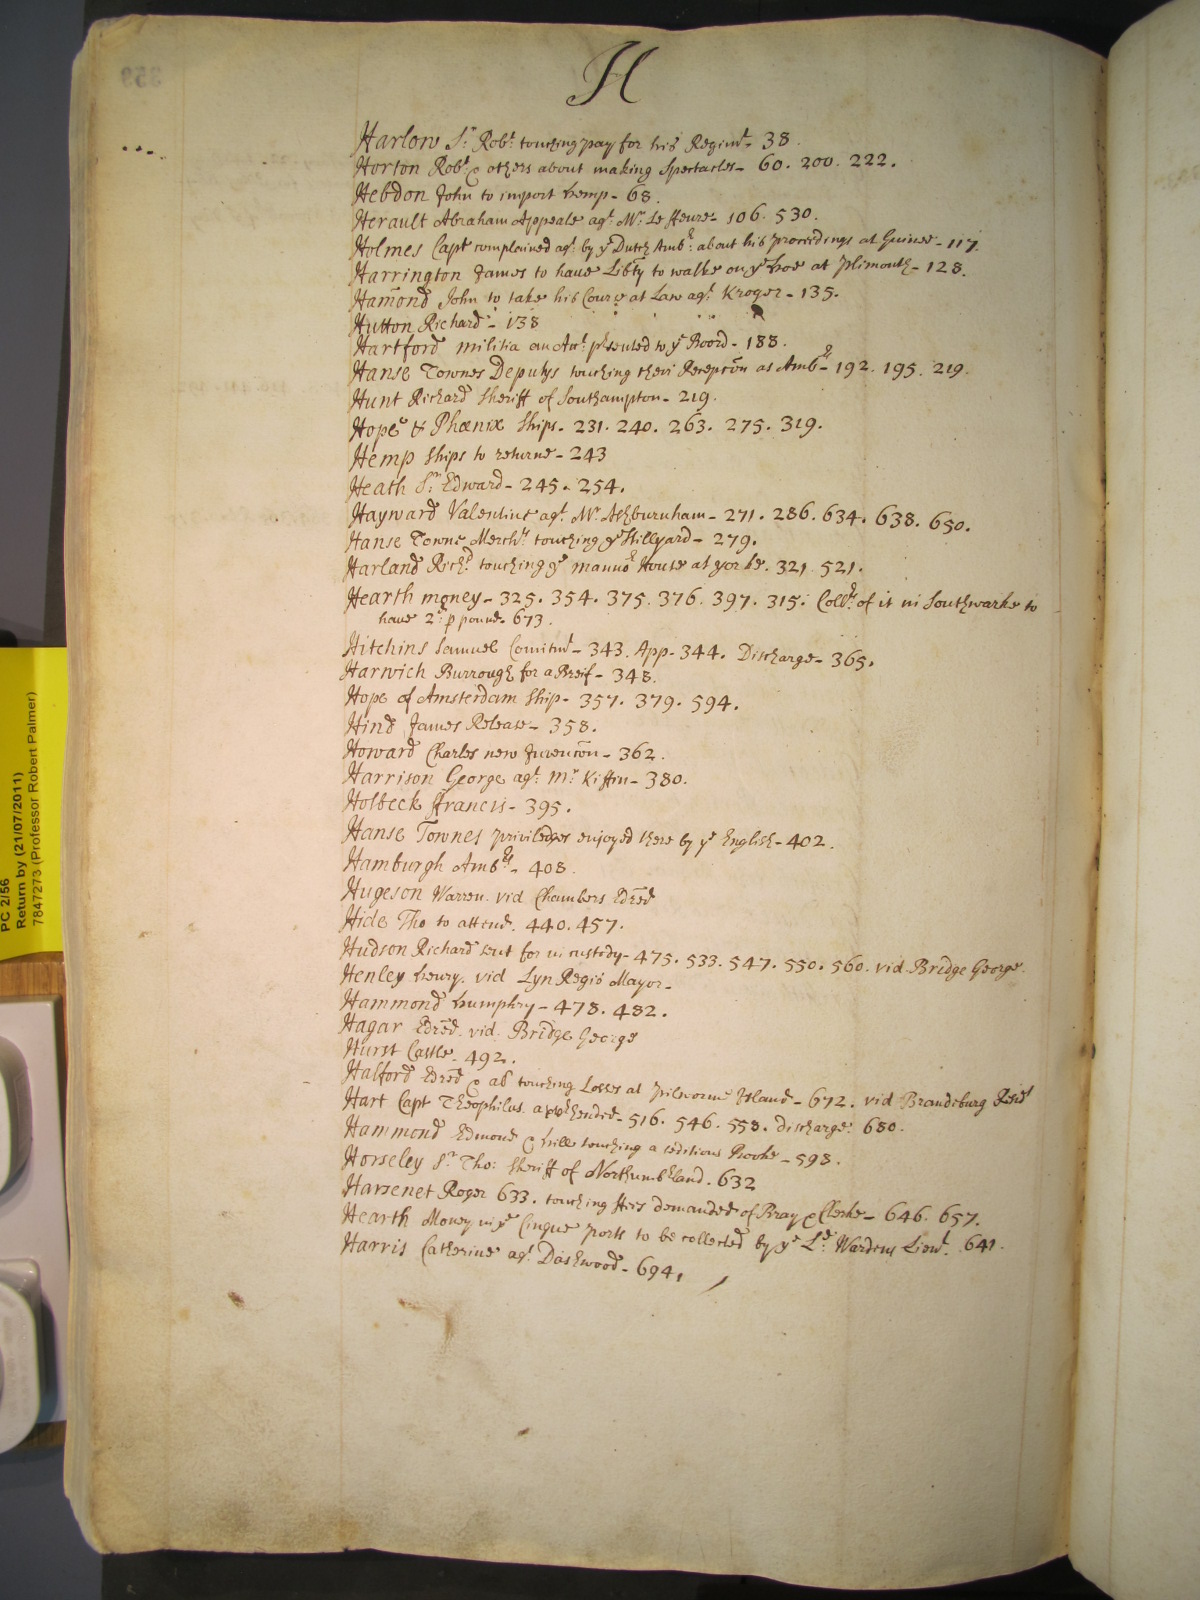 359
H
Harlow Sr. Robt. touching pay for his Regimt. 38.
Horton Robt. & others about making Spectacles - 60. 200. 222.
Hebdon John to import hemp - 68.
Herault Abraham Appeale agt. Mr. Le Heure - 106. 530.
Holmes Capt complained agt. by ye Dutch Ambr. about his proceedings at Guinee - 117.
Harrington James to haue Libty to walke on ye hoe at plimouth - 128.
Hamond John to take his Course at Law agt. Kroger - 135.
Hutton Richard - 138
Hartford militia an Act. psented to ye Boord - 188.
Hanse Townes Deputys touching their Recepcon as Ambrs - 192. 195. 219.
Hunt Richard Sheriff of Southampton - 219.
Hope & Phœnix Ships - 231. 240. 263. 275. 319.
Hemp Ships to returne - 243
Heath Sr. Edward - 245. 254.
Hayward Valentine agt. Mr. Ashburnham - 271. 286. 634. 638. 650.
Hanse Towne Mercht. touching ye Stillyard - 279.
Harland Richd. touching ye mannor House at yorke. 321. 521.
Hearth money - 325. 354. 375. 376. 397. 315. Collrs. of it in Southwarke to
haue 2s. p pound. 673.
Hitchins Samuel Comitmt - 343. App - 344. Discharge - 365.
Harwich Burrough for a Breif - 348.
Hope of Amsterdam Ship - 357. 379. 594.
Hind James Release - 358.
Howard Charles new Invencon - 362.
Harrison George agt. Mr. Kiffin - 380.
Holbeck ffrancis - 395.
Hanse Townes priviledges enjoyed there by ye English - 402.
Hamburgh Ambrs. - 408.
Hugeson Warren. vid Chambers Edred
Hide Tho to attend. 440. 457.
Hudson Richard sent for in custody - 475. 533. 547. 550. 560. vid Bridge George.
Henley henry. vid Lyn Regis Mayor -
Hammond humphry - 478. 482.
Hagar Edred. vid. Bridge George
Hurst Castle. 492.
Halford Edred & al touching Losses at Island - 672. vid Brandeburg Resid
Hart Capt Theophilus. apprhended - 516. 546. 558. discharge: 680.
Hammond Edmond & touching a seditious Booke - 598.
Horseley Sr. Tho: Sheriff of Northumbland. 632
Harsenet Roger 633. touching ffees demanded of Bray & Clerke - 646. 657.
Hearth Money in ye Cinque ports to be collected by ye Ld. Wardens Lieut. 641.
Harris Catherine agt. Dashwood - 694.
PC 2/56
Return by (21/07/2011)
7847273 (Professor Robert Palmer)